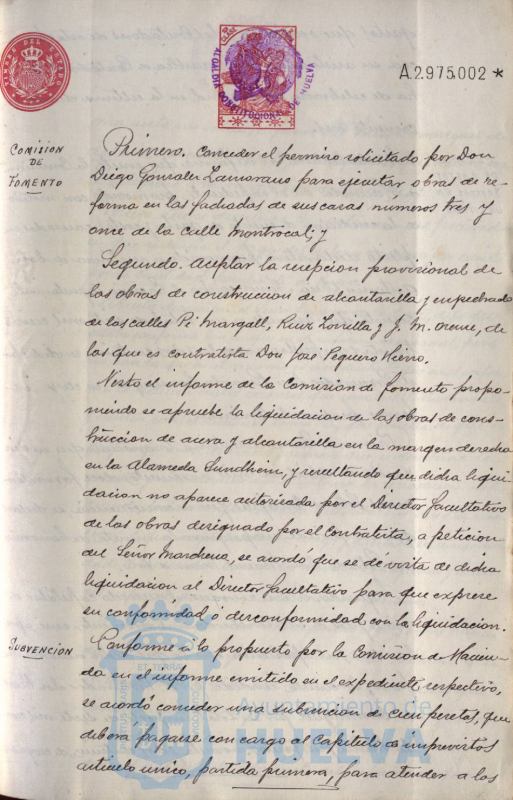 TIMBRE DEL ESTADO
ALCALDIA CONSTITUCIONAL DE HUELVA
A.2975002 *
COMISION
DE
FOMENTO
Primero. Conceder el permiso solicitado por Don
Diego Gonzalez Zamorano para ejecutar obras de re-
forma en las fachadas de sus casas números tres y
once de la calle Montrocal; y
Segundo. Aceptar la recepcion provisional de
las obras de construccion de alcantarilla y empedrado
de las calles Pi Margall, Ruiz Zorrilla y J. M. Orense, de
las que es contratista Don José Peguero Hierro.
Visto el informe de la Comision de Fomento propo-
niendo se apruebe la liquidacion de las obras de cons-
truccion de acera y alcantarilla en la margen derecha
en la Alameda Sundheim, y resultando que dicha liqui-
dacion no aparece autorizada por el Director facultativo
de las obras designado por el contratista, a peticion
del Señor Marchena, se acordó que se dé vista de dicha
liquidacion al Director facultativo para que exprese
su conformidad ó disconformidad con la liquidacion.
SUBVENCION
Conforme a lo propuesto por la Comision de Hacien-
da en el informe emitido en el expediente respectivo,
se acordó conceder una subvencion de cien pesetas, que
deberá pagarse con cargo al Capitulo de imprevistos
articulo unico, partida primera, para atender a los
Ayuntamiento de
HUELVA